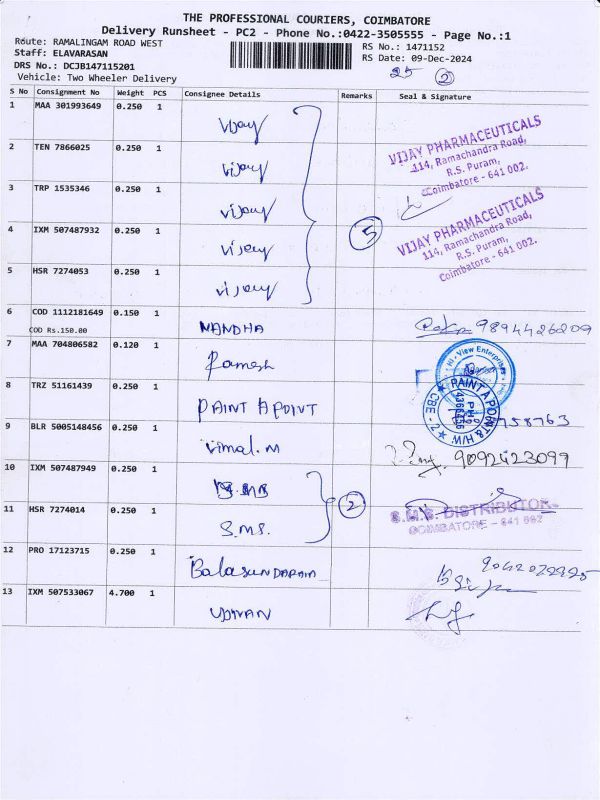 THE PROFESSIONAL COURIERS, COIMBATORE
Delivery Runsheet - PC2 - Phone No.:0422-3505555 - Page No.:1
Route: RAMALINGAM ROAD WEST
RS No.: 1471152
Staff: ELAVARASAN
RS Date: 09-Dec-2024
DRS No.: DCJB147115201
25 2
Vehicle: Two Wheeler Delivery
S No Consignment No Weight PCS Consignee Details Remarks Seal & Signature
1 MAA 301993649 0.250 1 Vijay
2 TEN 7866025 0.250 1 Vijay
VIJAY PHARMACEUTICALS
114, Ramachandra Road,
R.S. Puram,
Coimbatore - 641 002.
3 TRP 1535346 0.250 1 Vijay
4 IXM 507487932 0.250 1 Vijay 5
VIJAY PHARMACEUTICALS
114, Ramachandra Road,
R.S. Puram,
Coimbatore - 641 002.
5 HSR 7274053 0.250 1 Vijay
6 COD 1112181649 0.150 1 NANDHA 9894426209
COD Rs.150.00
7 MAA 704806582 0.120 1 Ramesh
Hi-View Enterprises
8 TRZ 51161439 0.250 1 PAINT A POINT
PAINT A POINT & H/W
CBE - 2
PH
4366436
9 BLR 5005148456 0.250 1 Vimal.M 9092423099
758763
10 IXM 507487949 0.250 1
11 HSR 7274014 0.250 1 S.M.S. 2
S.M.S. DISTRIBUTOR
COIMBATORE - 641 002
12 PRO 17123715 0.250 1 Balasundaram
13 IXM 507533067 4.700 1